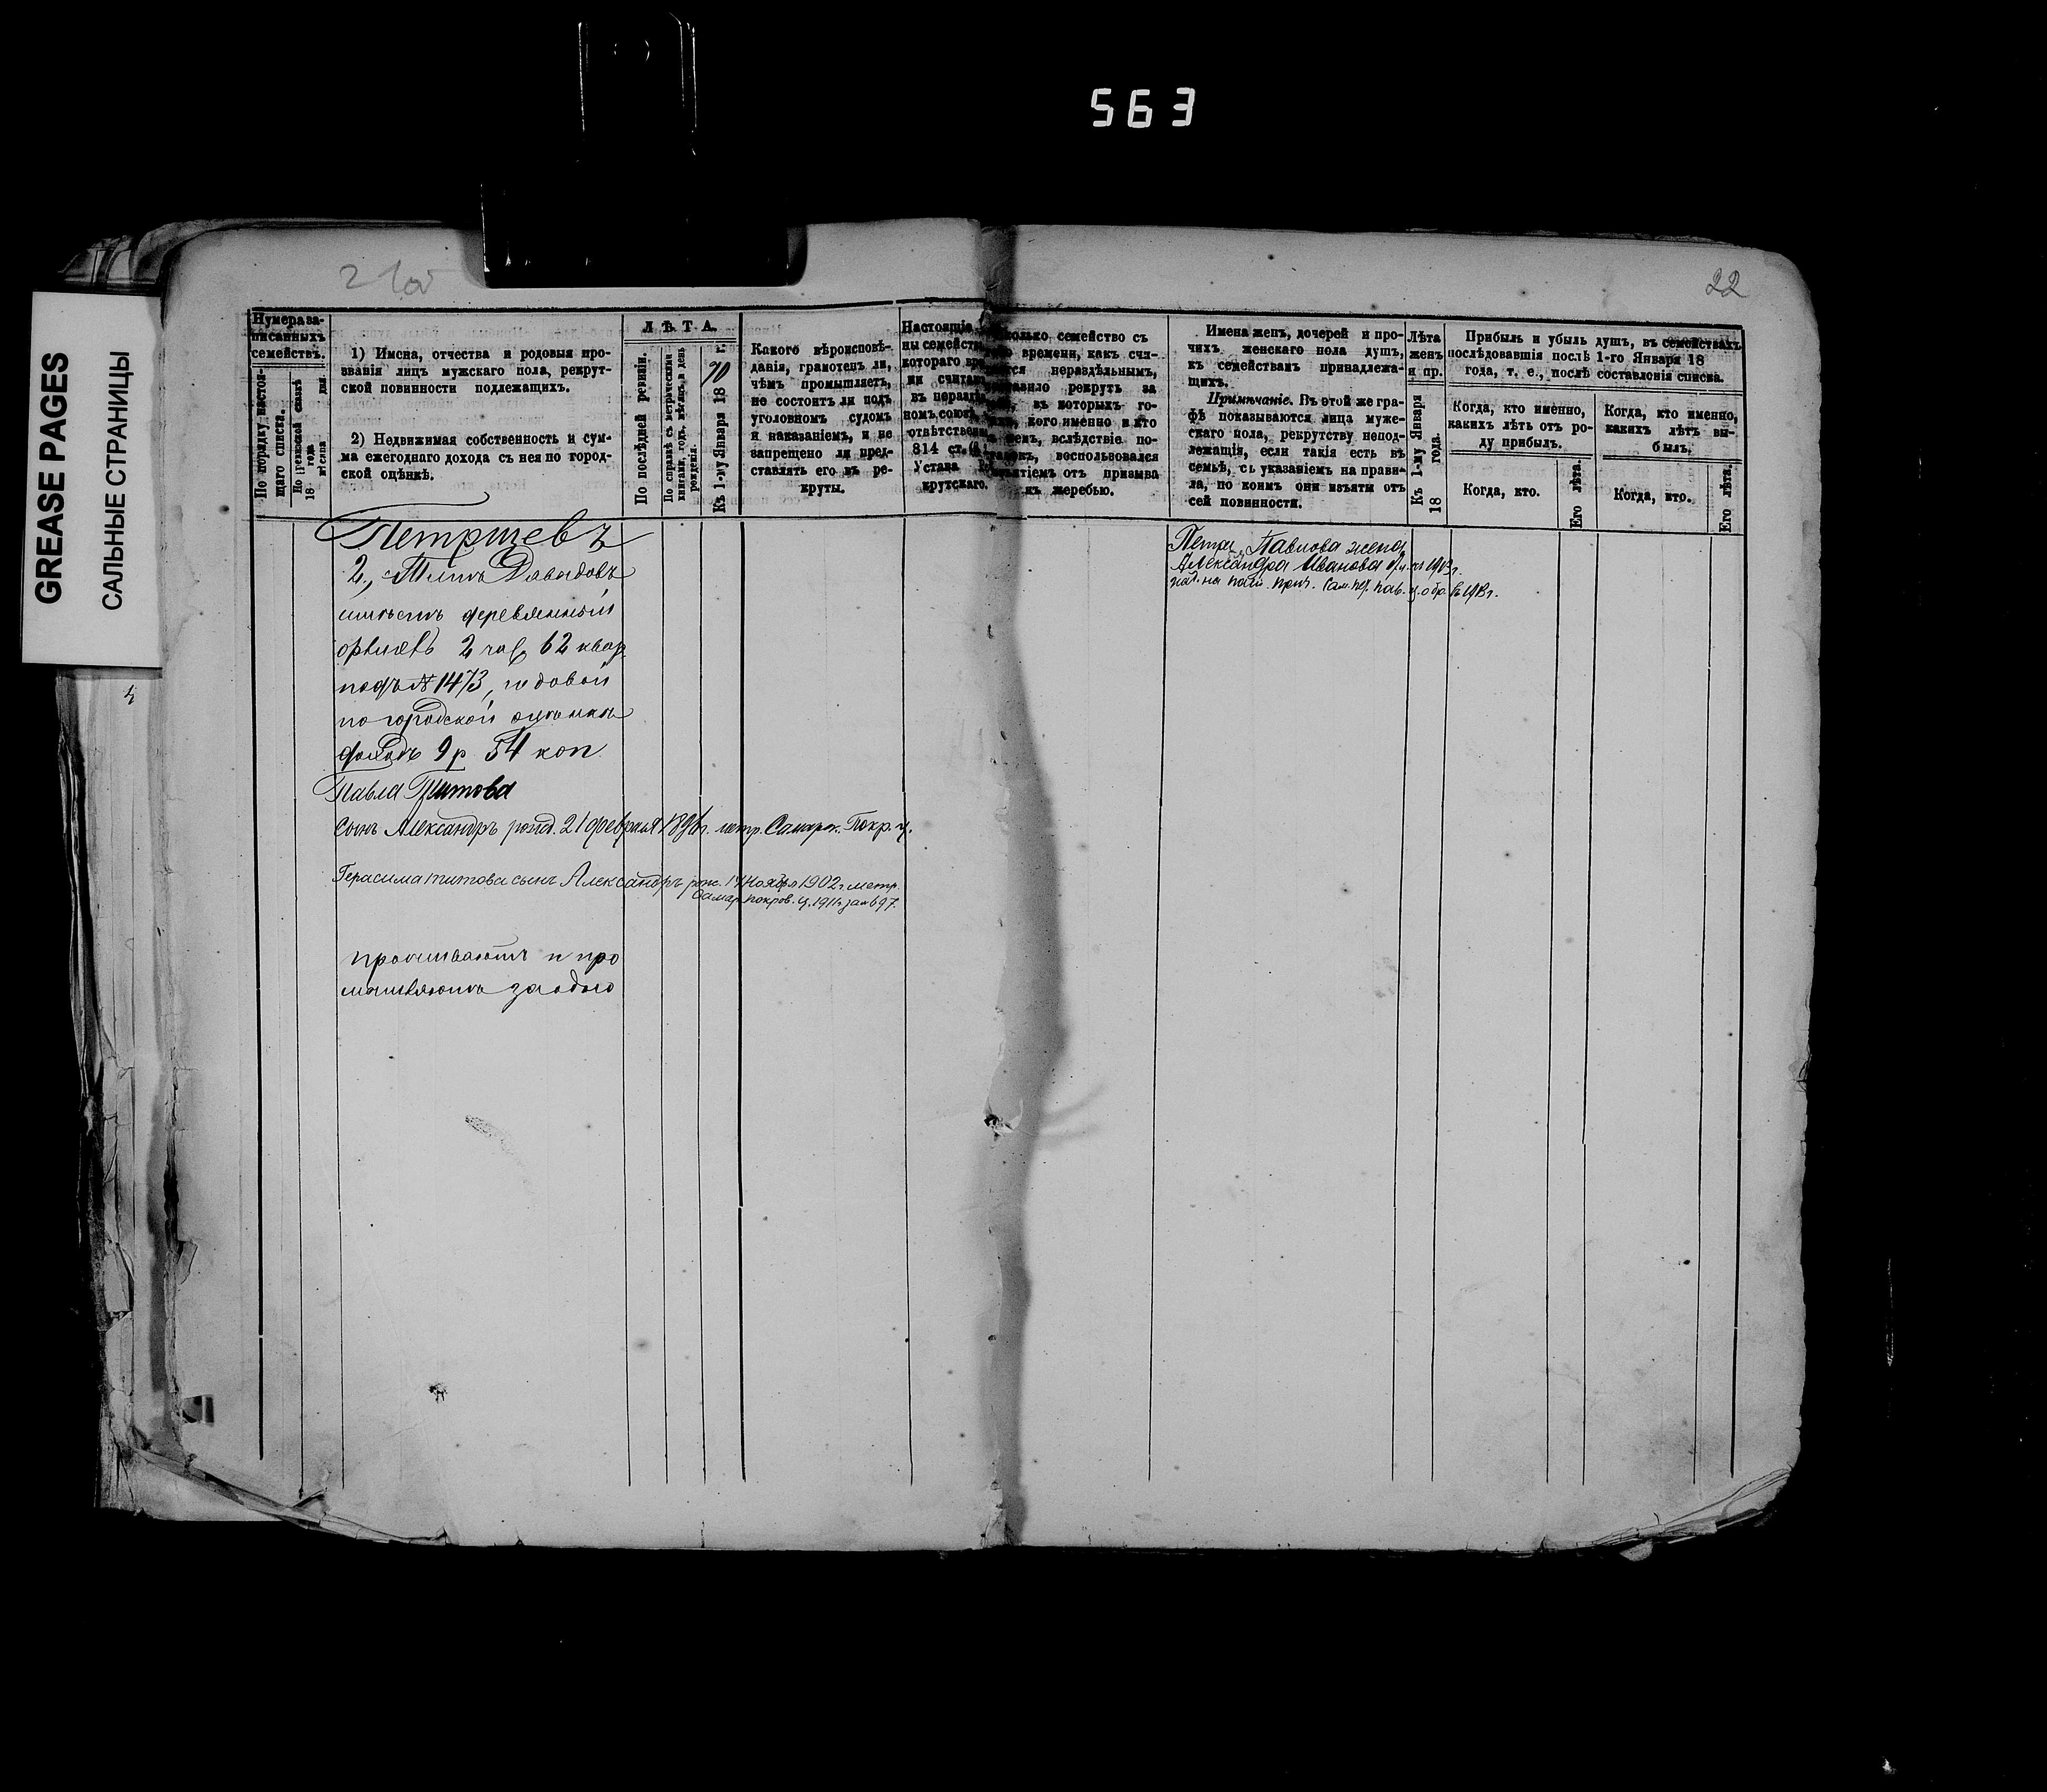 563
GREASE PAGES
САЛЬНЫЕ СТРАНИЦЫ
22
Нумера за-
писанныхъ
семействъ.
По порядку настоя-
щаго списка.
По ревизской сказкѣ
18 года
мѣсяца дня.
1) Имена, отчества и родовыя про-
званія лицъ мужскаго пола, рекрут-
ской повинности подлежащихъ.
2) Недвижимая собственность и сум-
ма ежегоднаго дохода съ нея по город-
ской оцѣнкѣ.
ЛѢТА.
По послѣдней ревизіи.
По справкѣ съ метрическими
книгами, годъ, мѣсяцъ и день
рожденія.
Къ 1-му Января 1870 г.
Какого вѣроисповѣ-
данія, грамотенъ ли,
чѣмъ промышляетъ,
не состоитъ ли подъ
уголовномъ судомъ
и наказаніемъ, и не
запрещено ли пред-
ставлять его въ ре-
круты.
Настоящіе
ны семейств
котораго вре
ни считал
въ неразд
номъ союз
отвѣтствен
814 ст.
Устава Ре
крутскаго.
колько семейство съ
времени, какъ счи-
тся нераздѣльнымъ,
равило рекрутъ за
въ которыхъ го-
кого именно и кто
емъ, вслѣдствіе по-
воспользовался
ятіемъ отъ призыва
къ жеребью.
Имена женъ, дочерей и про-
чихъ женскаго пола душъ,
къ семействамъ принадлежа-
щихъ.
Примѣчаніе. Въ этой же гра-
фѣ показываются лица муже-
скаго пола, рекрутству непод-
лежащія, если такія есть въ
семьѣ, съ указаніемъ на прави-
ла, по коимъ они изъяты отъ
сей повинности.
Лѣта
женъ
и пр.
Къ 1-му Января
18 года.
Прибыль и убыль душъ, въ семействахъ
послѣдовавшія послѣ 1-го Января 18
года, т. е., послѣ составленія списка.
Когда, кто именно,
какихъ лѣтъ отъ ро-
ду прибылъ.
Когда, кто.
Его лѣта.
Когда, кто именно,
какихъ лѣтъ вы-
былъ.
Когда, кто.
Его лѣта.
Петрщевъ
2, Титъ Давыдовъ
имѣетъ деревянный
2 час 62 квар.
подъ № 1473, годовой
по городской оцѣнкѣ
доходъ 9 р 54 коп
Павла Титова
сынъ Александръ рожд. 21 февраля 1896 г. метр. Самарск. Покр. ц.
Герасима Титова сынъ Александръ рож. 14 Ноября 1902 г. метр.
Самар. покров. ц. 1911 г. за № 697.
проживаютъ и про
мышляютъ заодно
Павлова жена
Александра Иванова